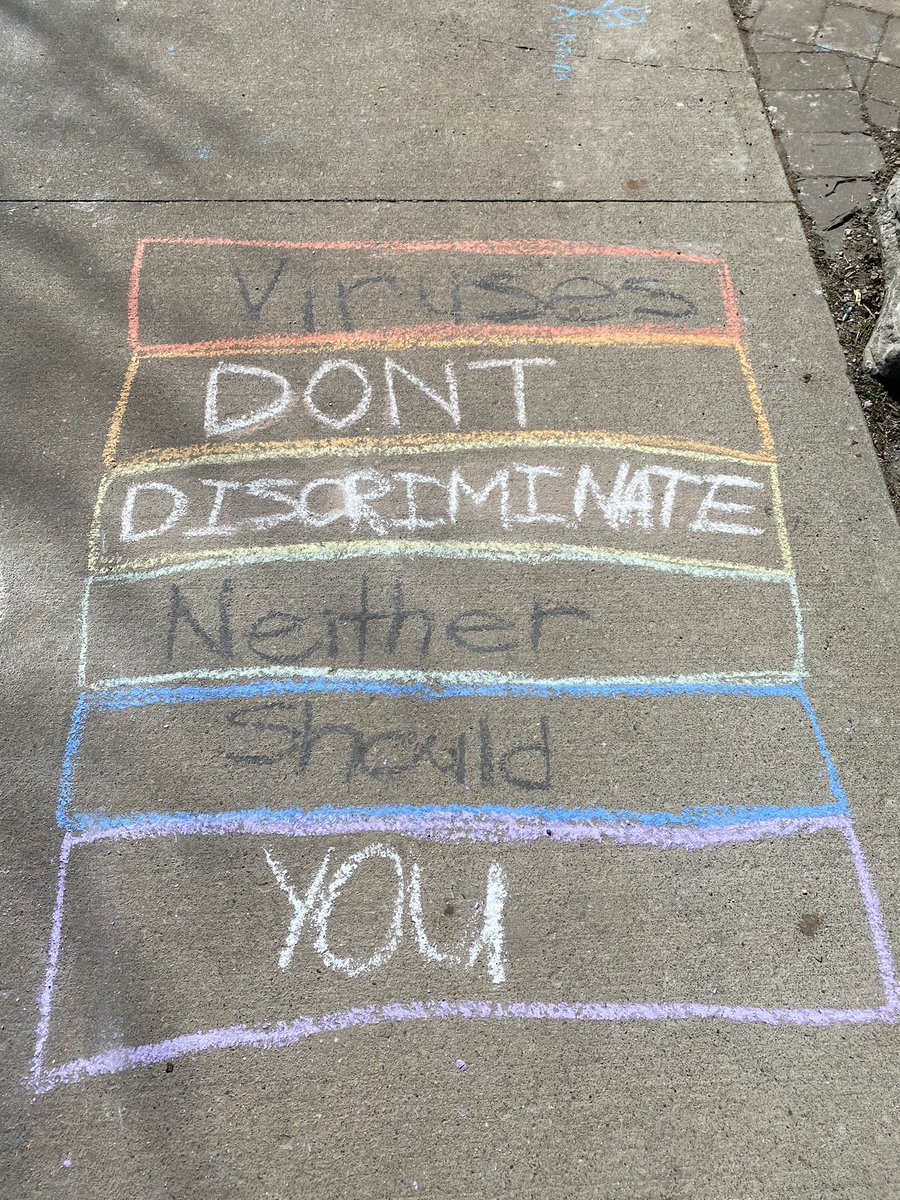 Viruses
DONT
DISCRIMINATE
Neither
Should
YOU